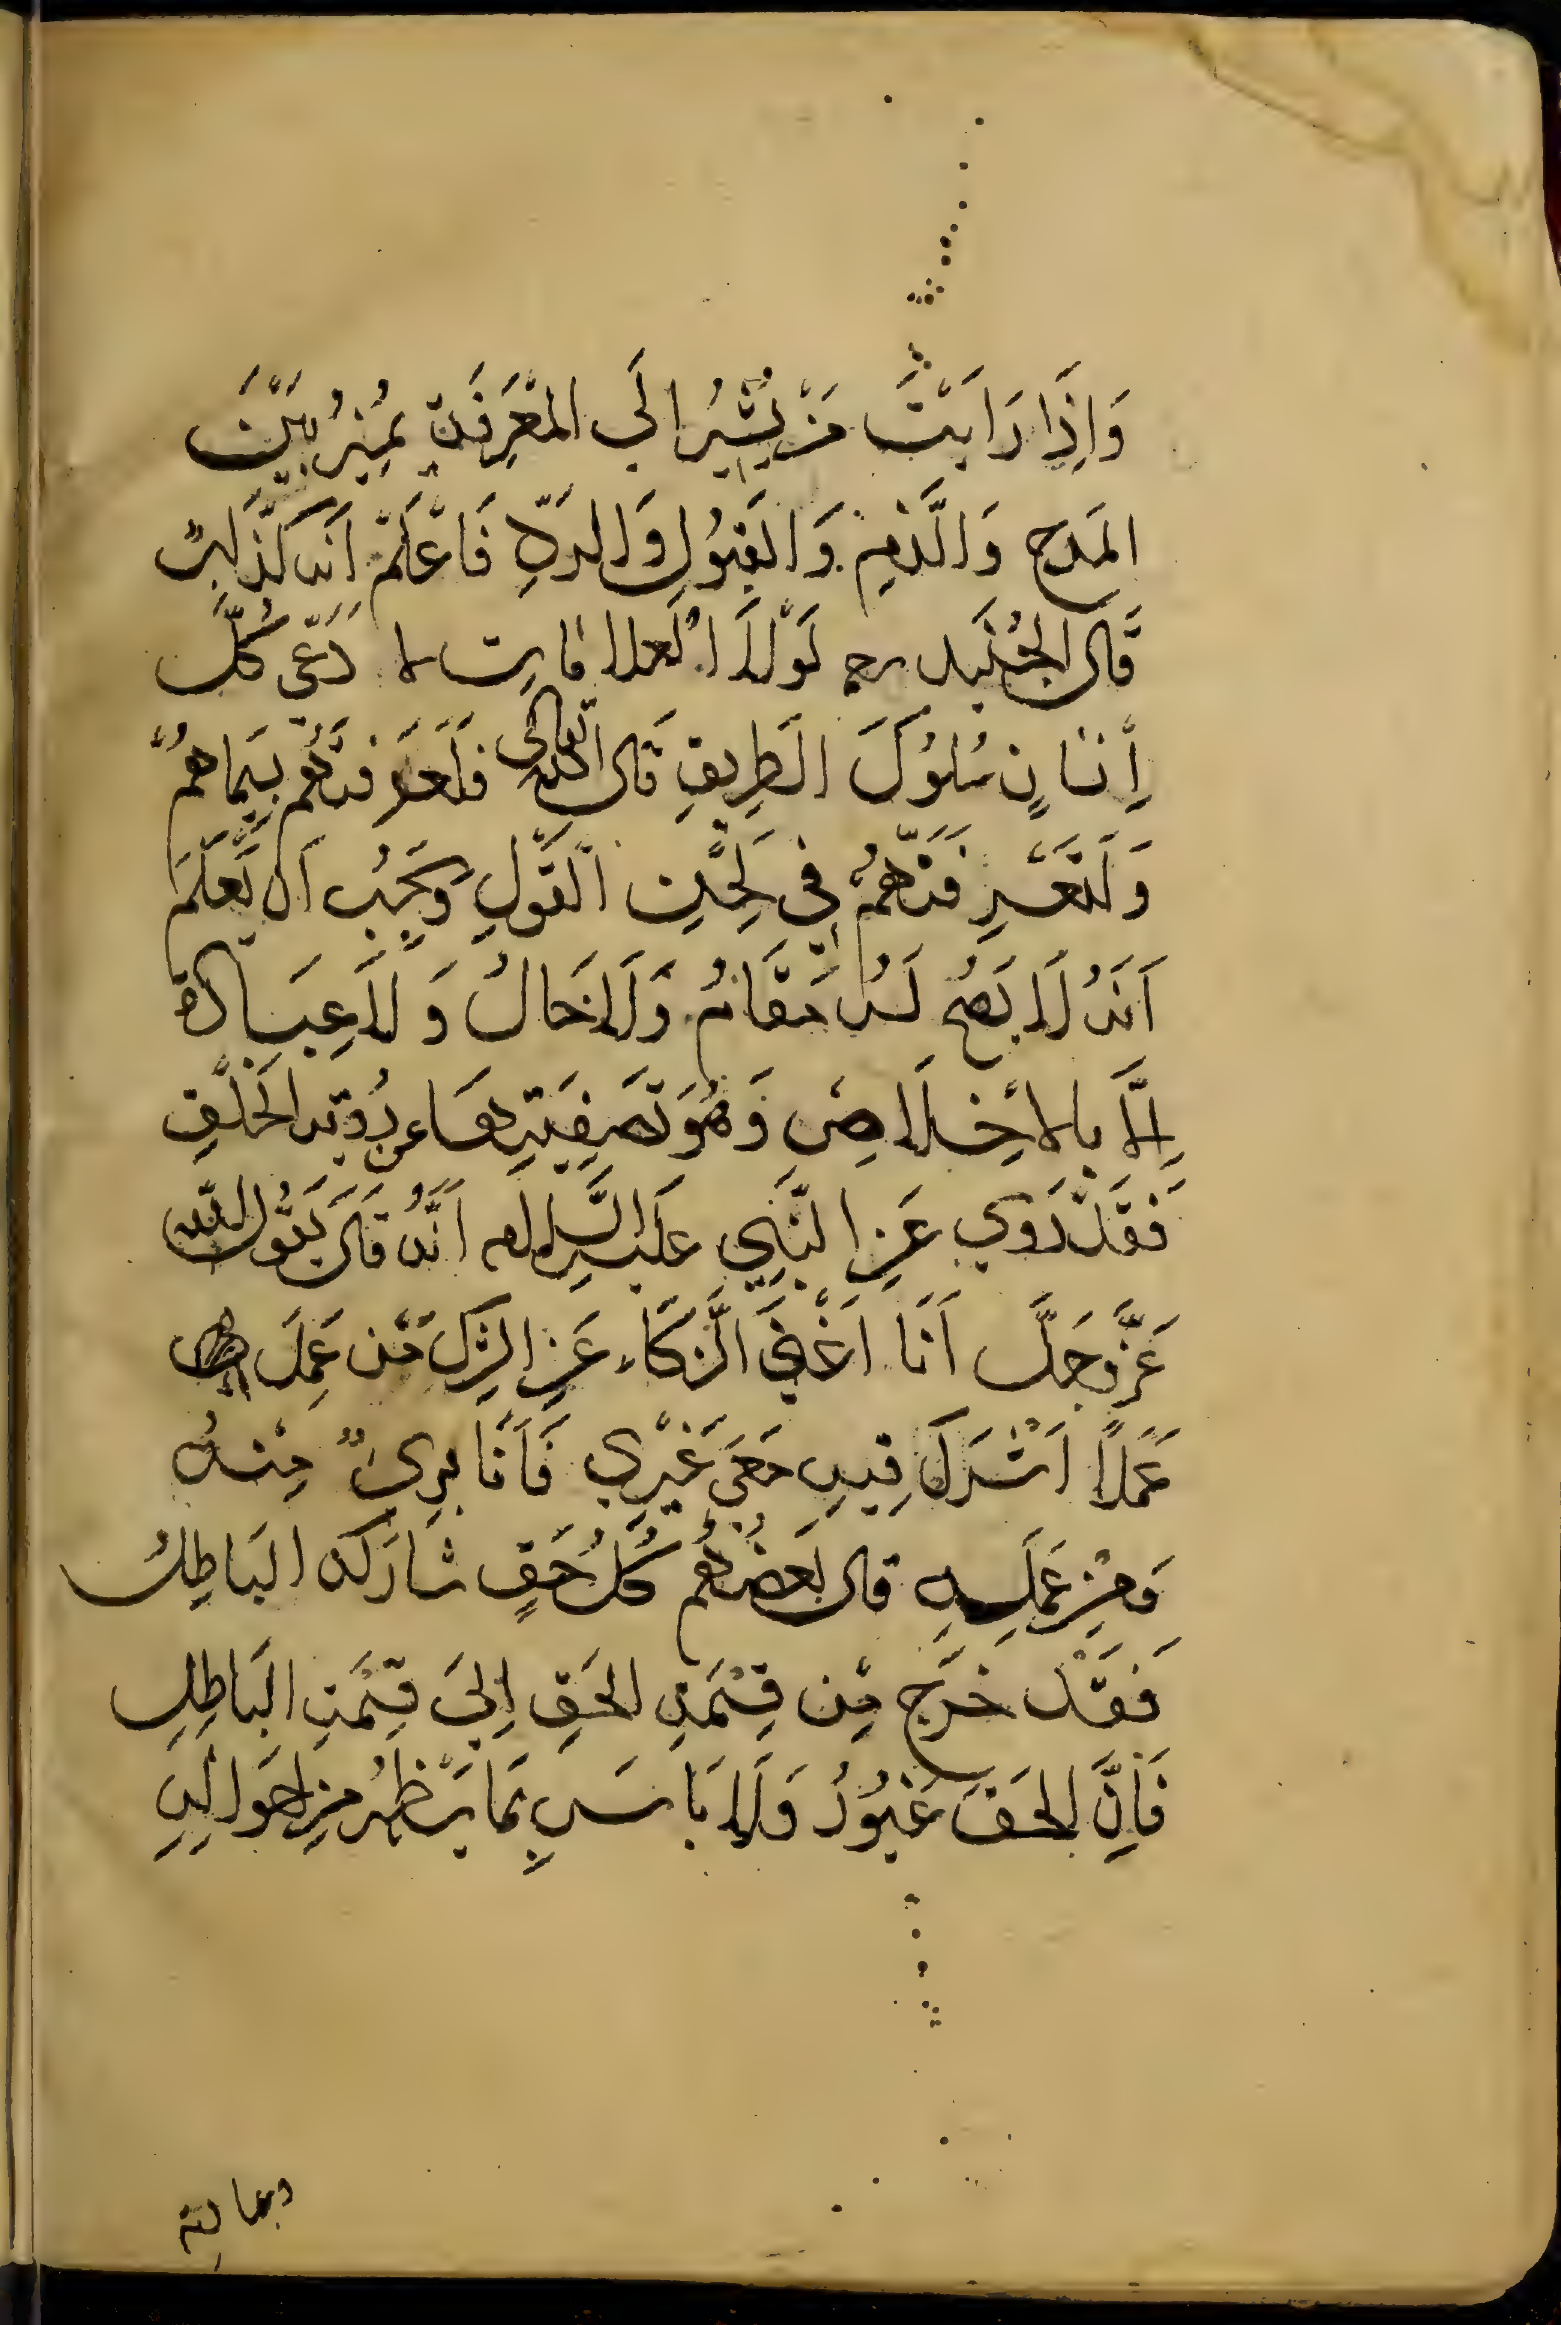 وَاِذَا رَاَيْتَ مَنْ يُشِيرُ اِلَي المَعْرِفَةِ يُمَيِّزُ بَيْنَ
المَدحِ وَالذَّمِ وَالقَبُولِ وَالرَدِّ فَاعْلَمْ اَنَه كَذَابٌ
قَالَ الجُنَيد رح لَوْلَا العلاماتِ لادَّعَى كُلُّ
اِنسَانٍ سُلُوكَ الطَرِيقِ قَالَ الله تعالى فَلَعَرَفْتَهُم بِسِيمَاهُمْ
وَلَتَعْرِفَنَّهُمْ فِي لَحْنِ القَوْلِ وَيَجِبُ اَن يَعْلَمَ
اَنَهُ لَا يَصِحُ لَهُ مَقَامٌ وَلَا حَالٌ وَلَا عِبَادَة
اِلَّا بِالاِخلَاصِ وَهُوَ تَصْفِيَتِهَا عن رُوية الخَلْقِ
فَقَدْ رَوي عَنِ النَّبِي عَلَيهِ السَّلام اَنَّهُ قَالَ يَقُولُ اللّه
عَزَّ وَجَلَّ اَنَا اَغْنَي الشُّرَكَاء عَنِ الشِّركِ مَن عَمِلَ
عَمَلاً اَشْرَكَ فِيهِ مَعِي غَيْرِي فَاَنَا بَرِيٌ مِنهُ
وَمِنْ عَمَلِهِ قال بَعضُهُم كُلُ حَقٍ شَارَكَه البَاطِلُ
فَقَدْ خَرَجَ مِن قِسْمَةِ الحَقِ اِلَى قِسْمَةِ البَاطِلِ
فَاِنَّ الحَقَ غَيُورٌ وَلَا بَاسَ بِمَا يَظْهَرُ مِن اَحوَالِهِ